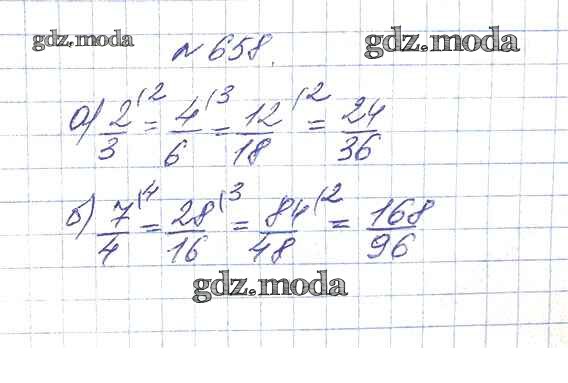 gdz.moda
gdz.moda
№ 658.
а) 2/3 (2 = 4/6 (3 = 12/18 (2 = 24/36
б) 7/4 (4 = 28/16 (3 = 84/48 (2 = 168/96
gdz.moda